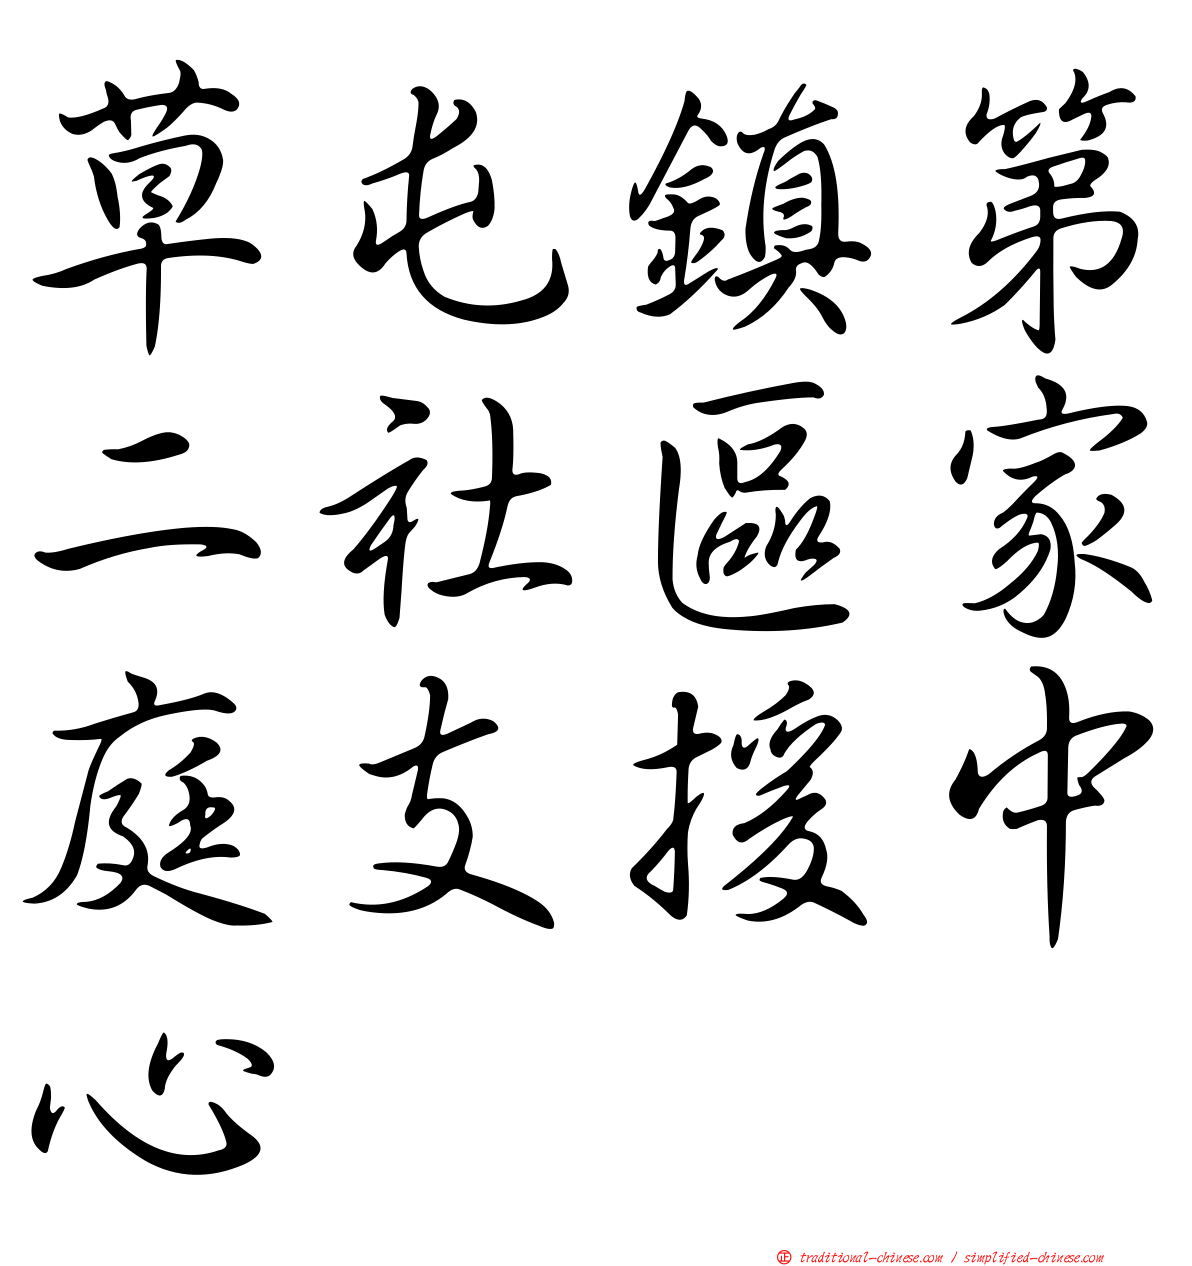 草屯鎮第
二社區家
庭支援中
心
正 traditional-chinese.com / simplified-chinese.com